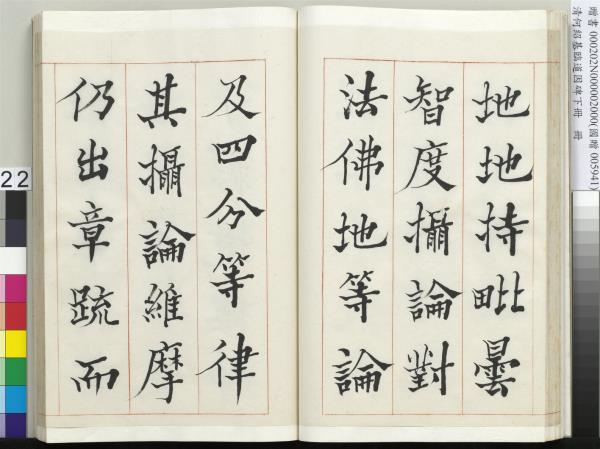 地地持毗曇
智度攝論對
法佛地等論
及四分等律
其攝論維摩
仍出章疏而
贈書 000202N000002000(國贈 005941)
清何紹基臨道因碑下冊 冊
22